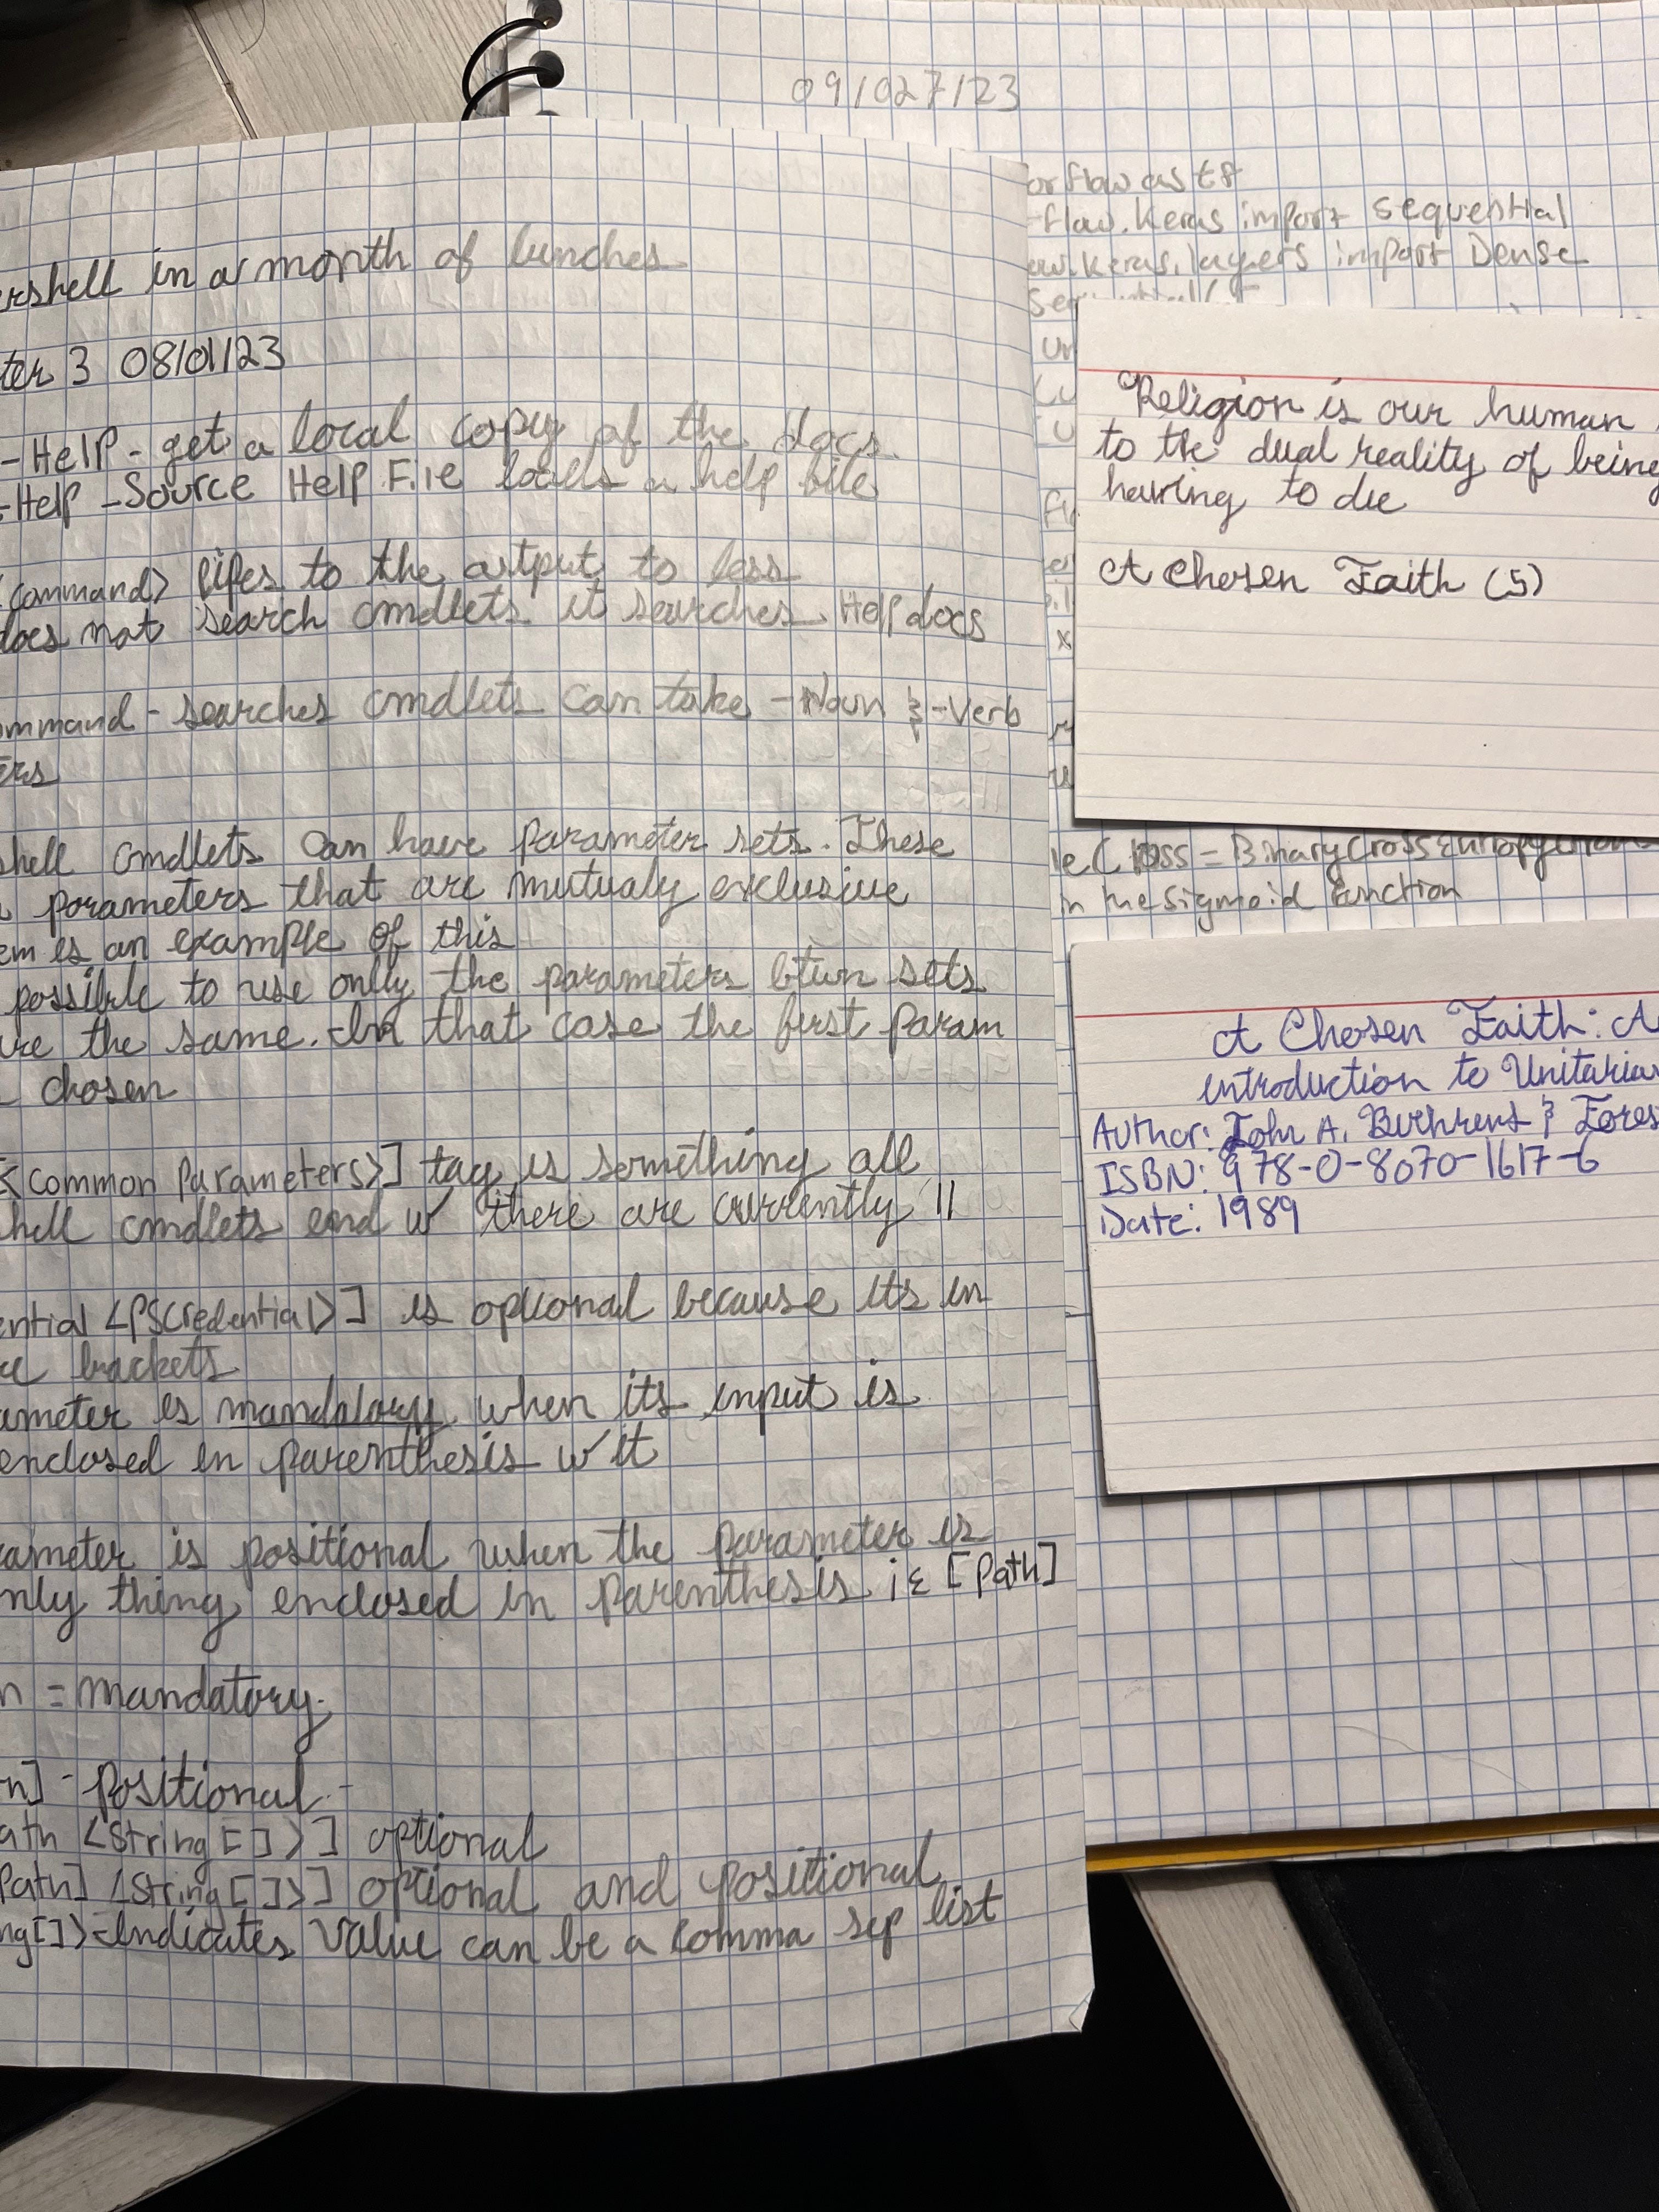 09/027/23
orflow as tf
-flow.Keras import sequential
ow.keras.layers import Dense
le( loss = BinaryCrossEntropy
in the sigmoid function
rshell in a month of lunches
ter 3 08/01/23
-Help - get a local copy of the docs
-Help -Source Help File loads a help file
command> pipes to the output to less
does not search cmdlets it searches Help docs
ommand - searches cmdlets can take -Noun & -Verb
ers
shell cmdlets can have parameter sets. These
parameters that are mutualy exclusive
em is an example of this
possible to use only the parameters btwn sets
are the same. In that case the first param
chosen
[<Common Parameters>] tag is something all
hell cmdlets end w/ there are currently 11
ential <PSCredential>] is optional because its in
re brackets
ameter is mandatory when its input is
enclosed in parenthesis w it
rameter is positional when the parameter is
nly thing enclosed in parenthesis iE [Path]
n = mandatory.
n] - positional -
ath <String[]>] optional
Path] <String[]>] optional and positional
ng[]> - Indicates value can be a comma sep list
"Religion is our human
to the dual reality of being
having to die
A Chosen Faith (5)
A Chosen Faith: A
introduction to Unitarian
Author: John A. Buehrens & Fores
ISBN: 978-0-8070-1617-6
Date: 1989